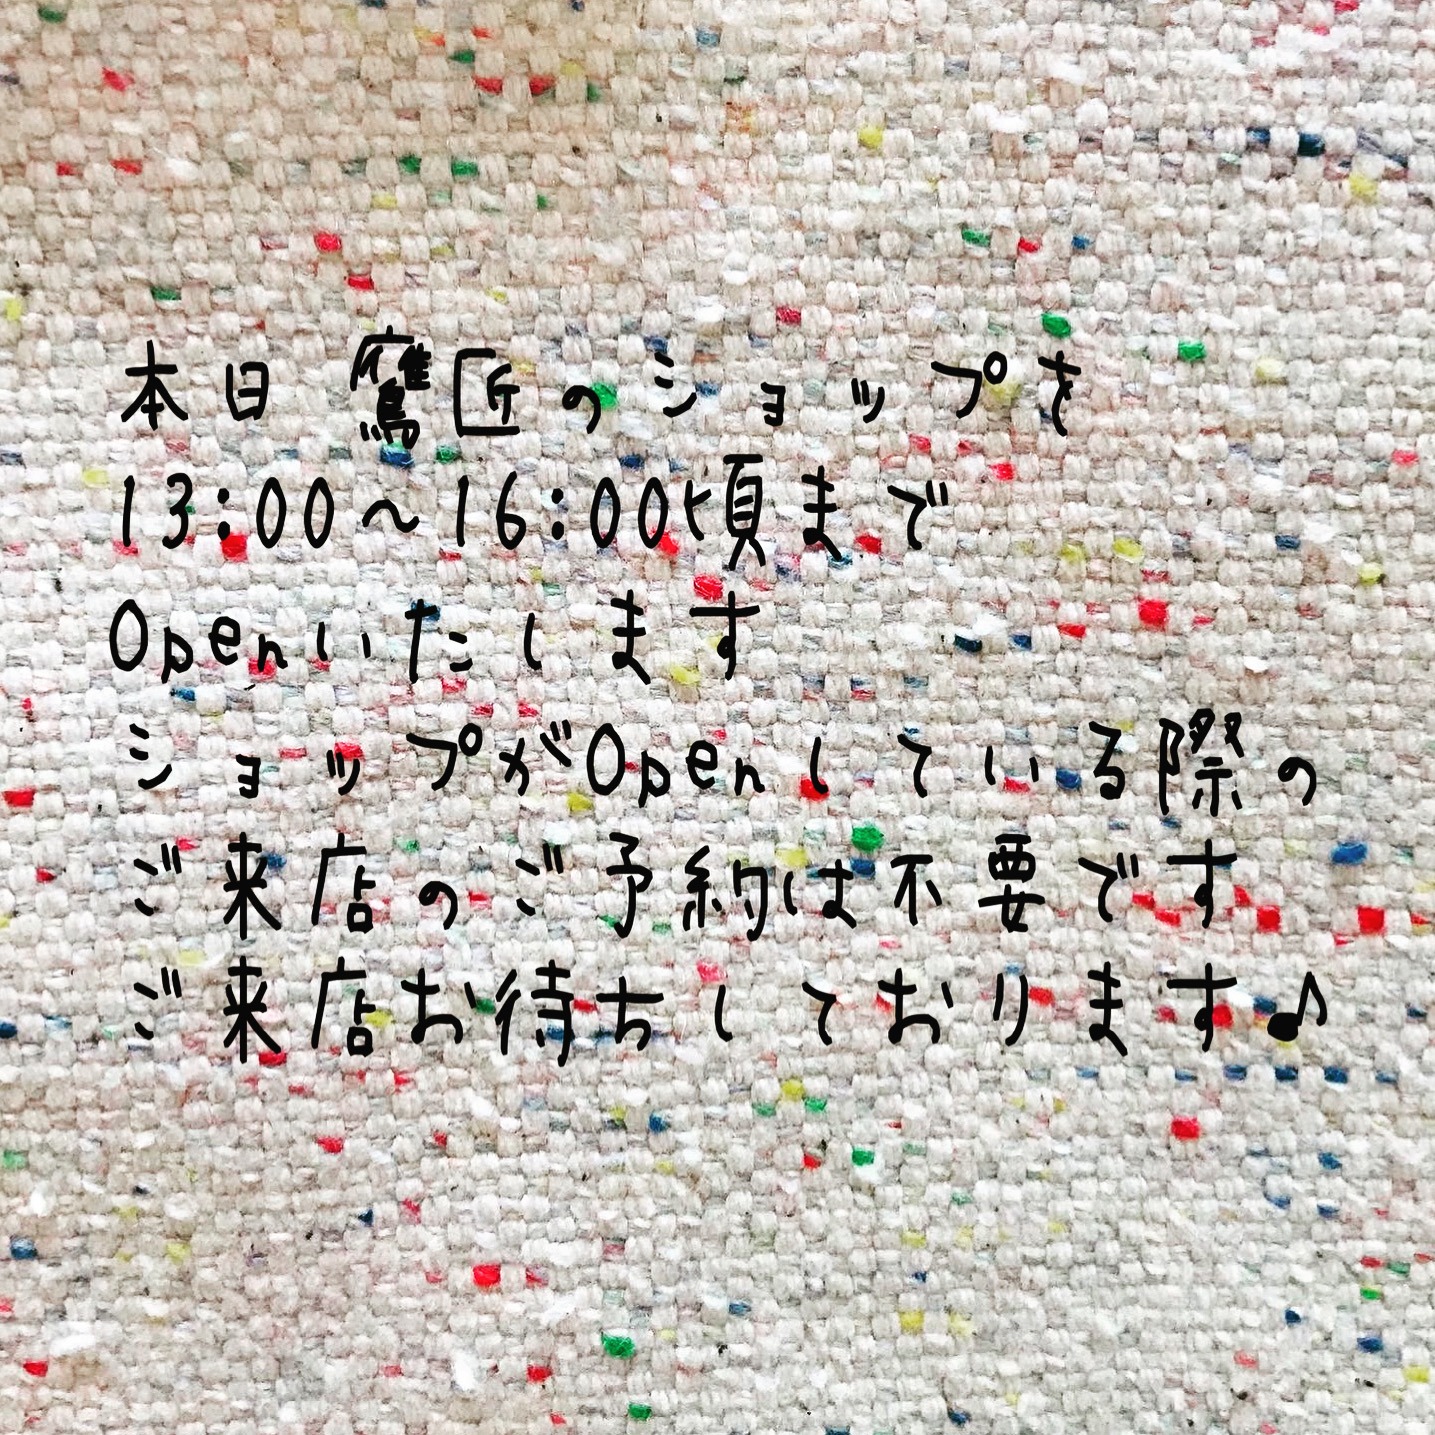 本日 鷹匠のショップを
13:00〜16:00頃まで
Openいたします
ショップがOpenしている際の
ご来店のご予約は不要です
ご来店お待ちしております♪